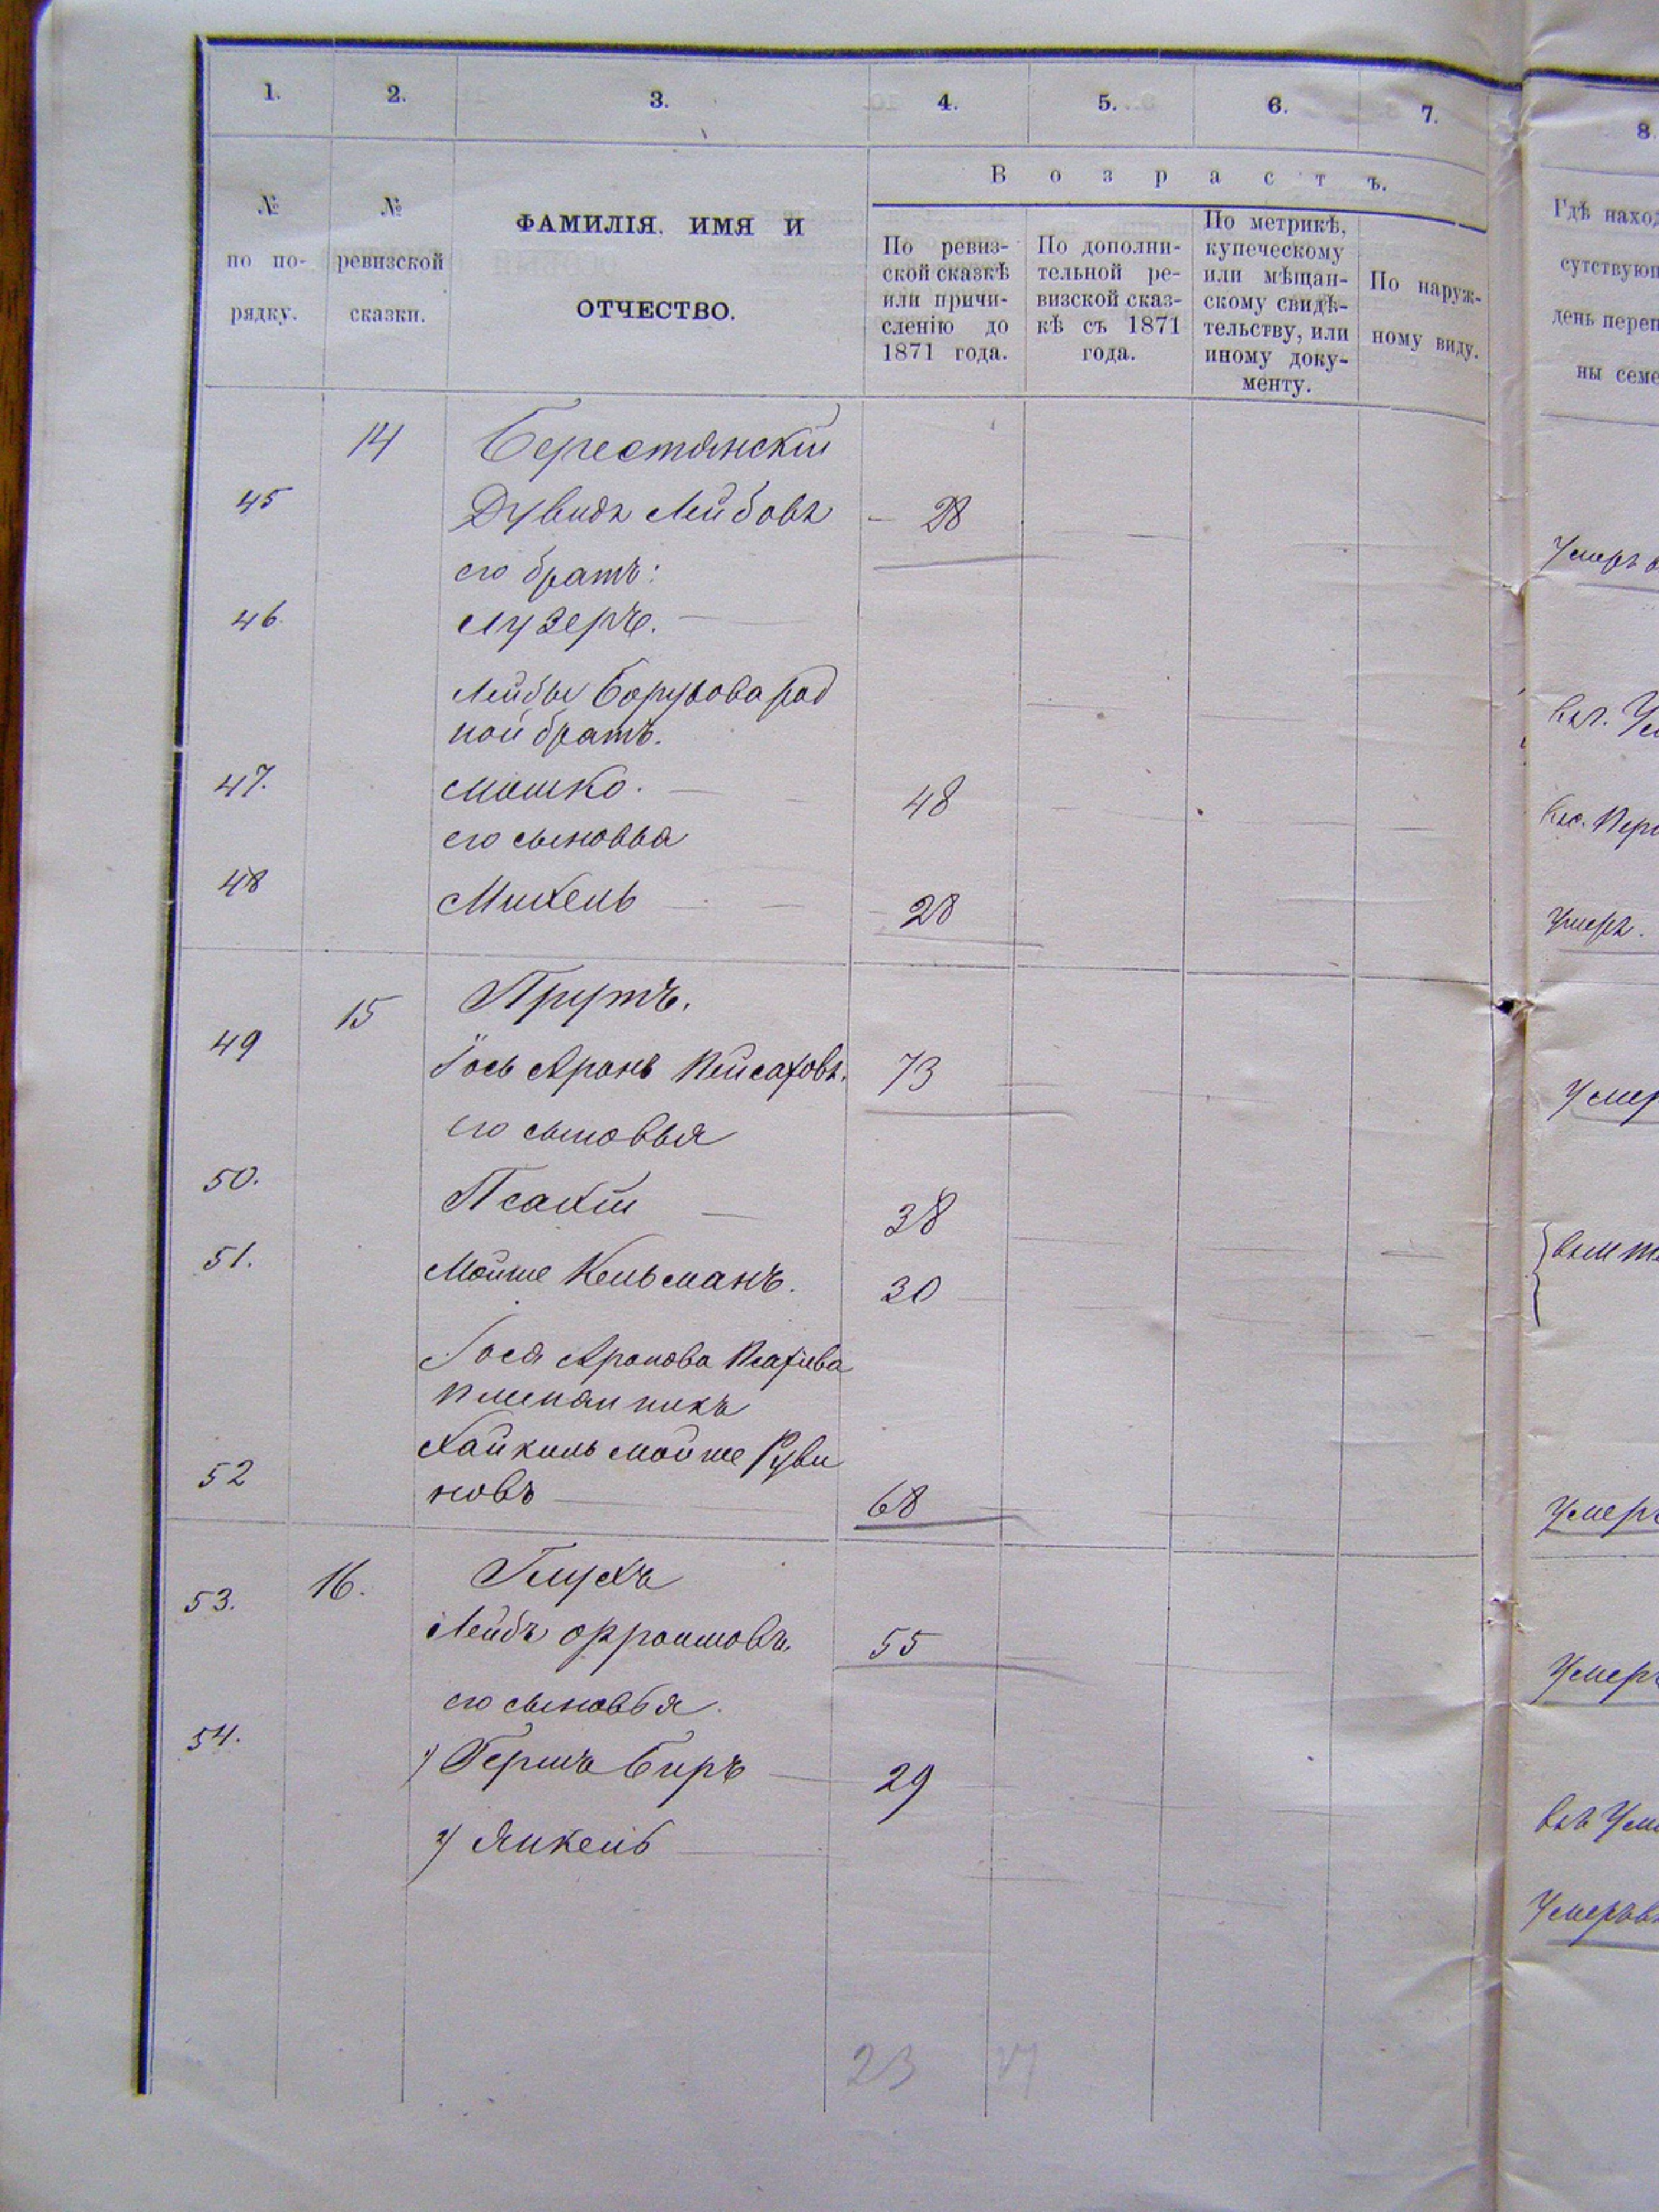 1. 2. 3. 4. 5. 6. 7. 8.
В о з р а с т ъ.
№ по по-рядку.
№ ревизской сказки.
ФАМИЛІЯ. ИМЯ И
ОТЧЕСТВО.
По ревиз-
ской сказкѣ
или причи-
сленію до
1871 года.
По дополни-
тельной ре-
визской сказ-
кѣ съ 1871
года.
По метрикѣ,
купеческому
или мѣщан-
скому свидѣ-
тельству, или
иному доку-
менту.
По наруж-
ному виду.
Гдѣ наход
сутствующ
день переп
ны семе
14 Берестянскій
45 Дувидъ Лейбовъ 28
его братъ:
46. Лузеръ.
Лейбы Борухова род
ной братъ.
47. Мошко. 48
его сыновья
48 Михель 28
Умеръ.
15 Прутъ.
49 Іось Аронъ Пейсаховъ. 73
Умер
его сыновья
50. Псахій 38
51. Мойше Кельманъ. 30
Іося Аронова Псахіева
племянникъ
Хайкель Мойше Руви
52 новъ 68
Умеръ
16. Глухъ
53. Лейбъ Фроимовъ. 55
Умеръ
его сыновья.
54. 1) Гершъ Беръ 29
2) Янкель
23